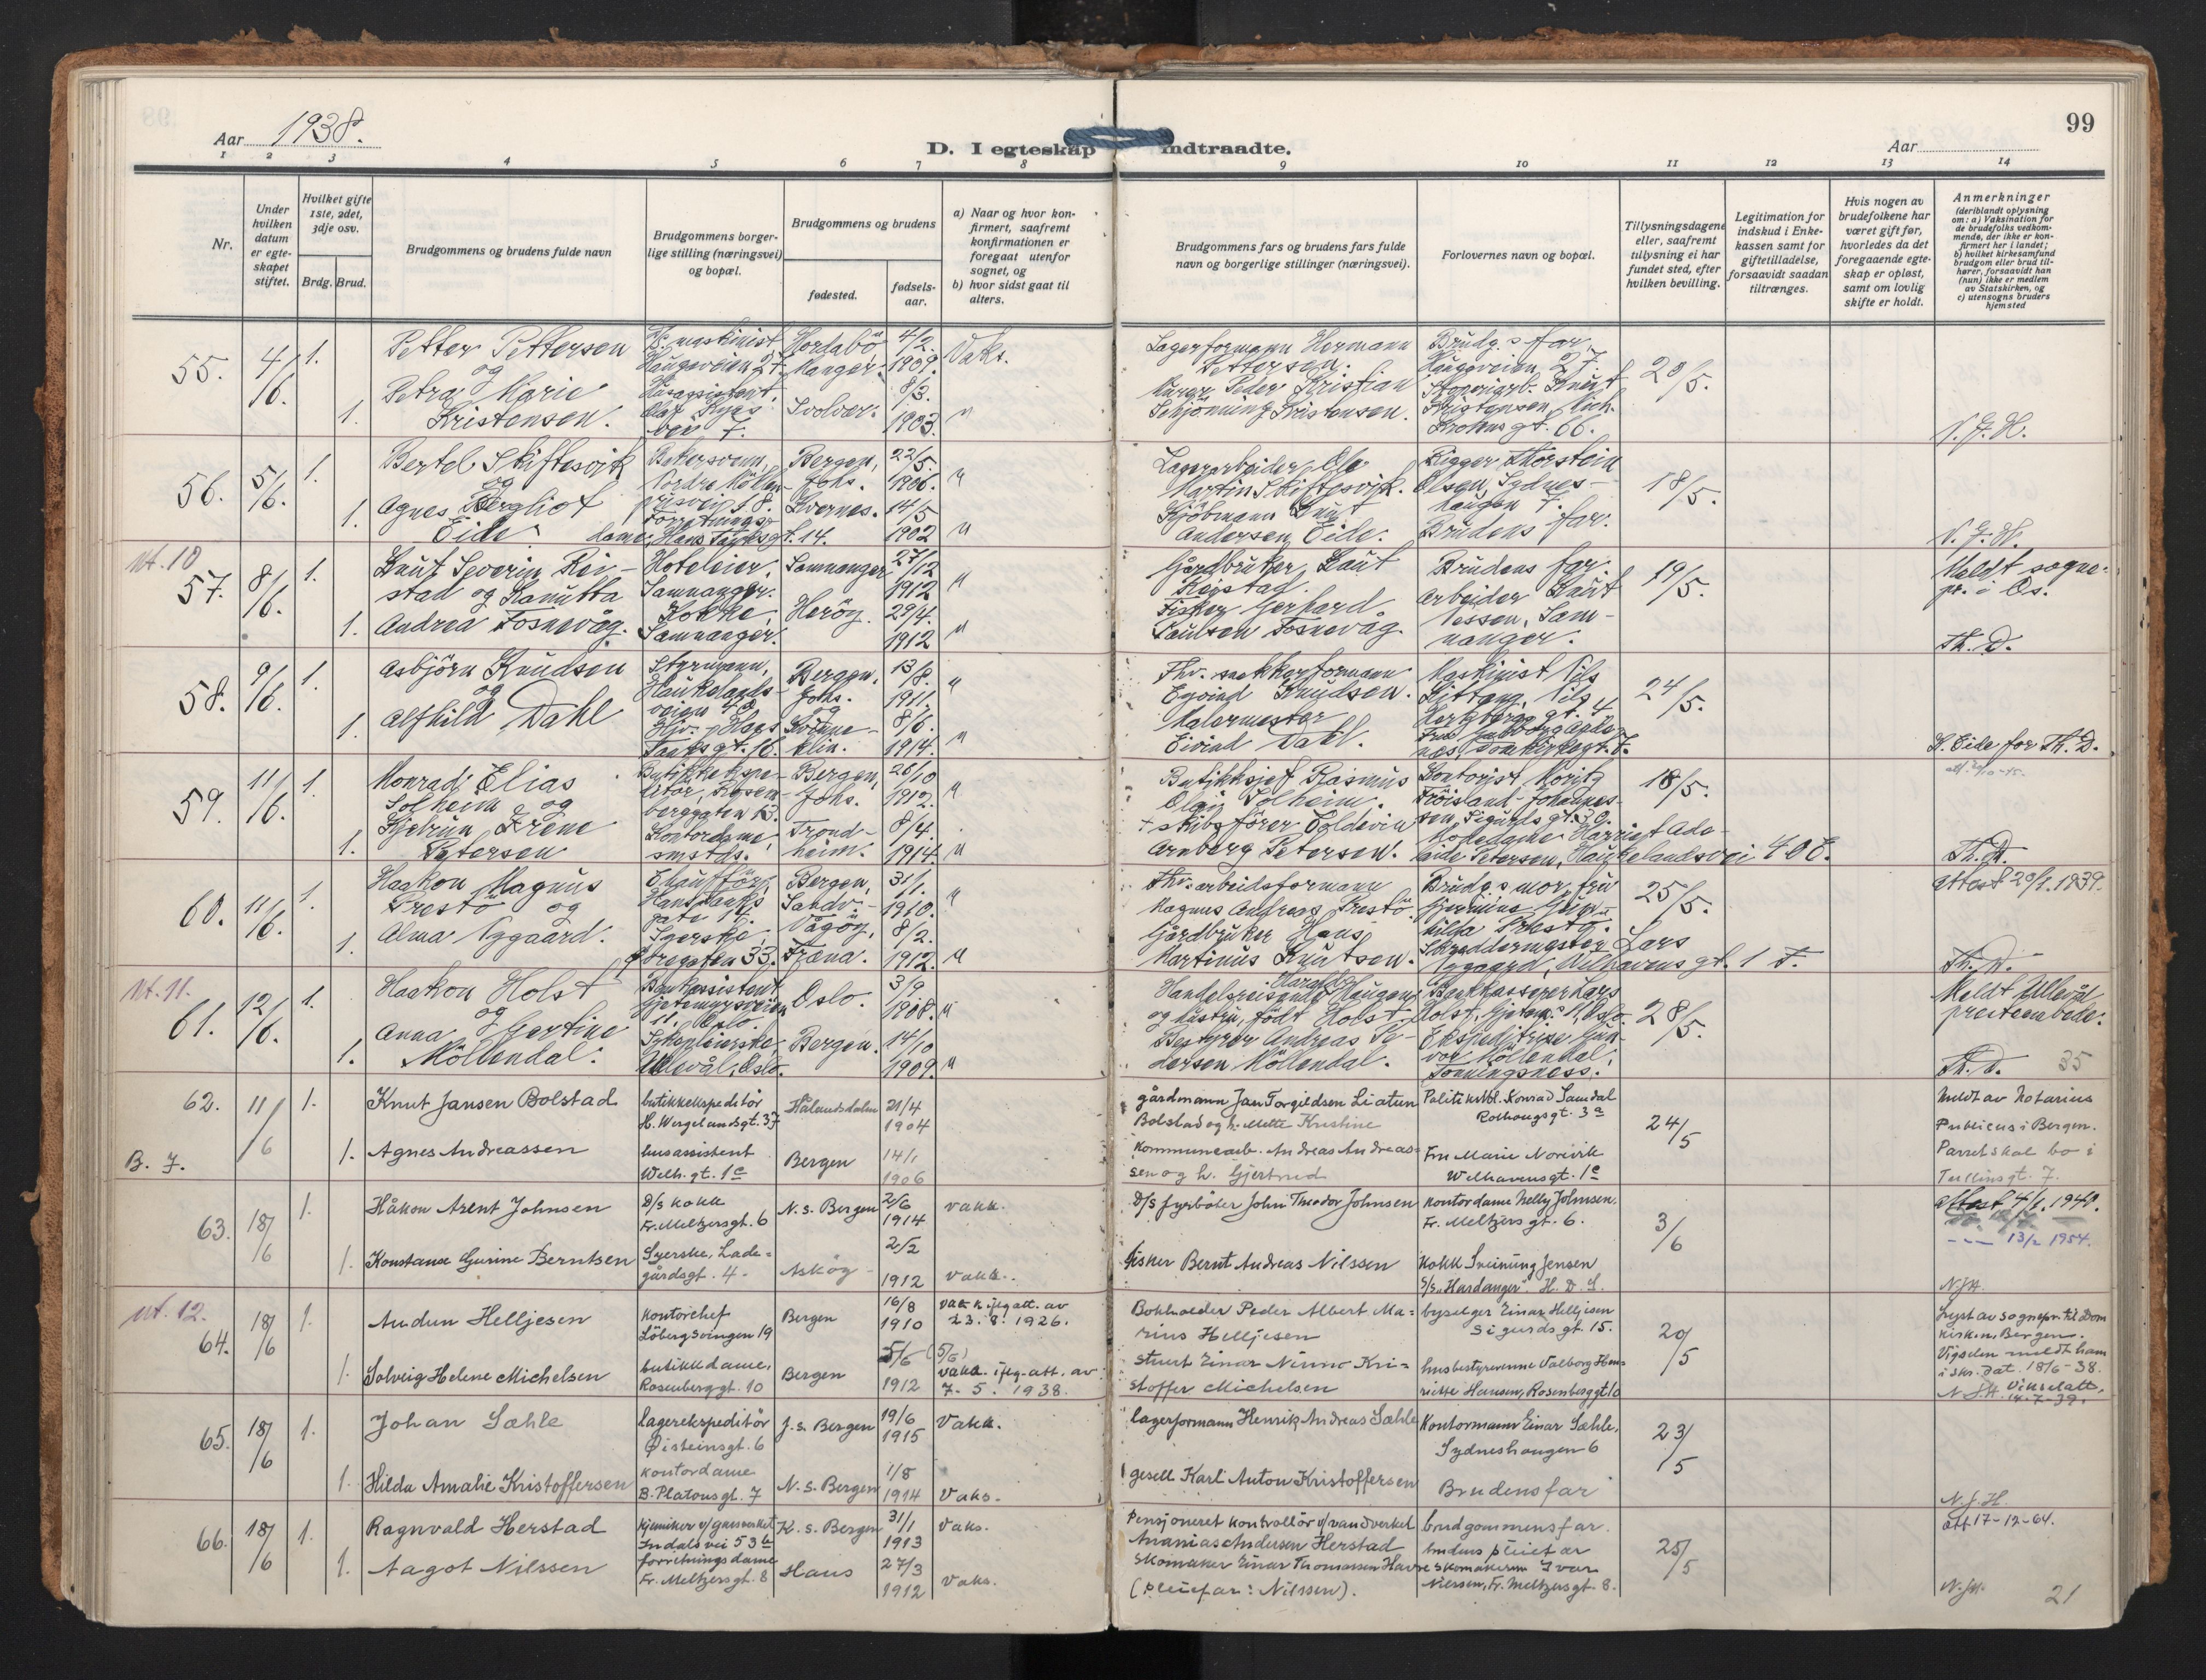 99
Aar 1938.
D. I egteskap indtraadte.
Aar
1 2 3 4 5 6 7 8 9 10 11 12 13 14
Nr.
Under hvilken datum er egteskapet stiftet.
Hvilket gifte 1ste, 2det, 3dje osv.
Brdg. Brud.
Brudgommens og brudens fulde navn
Brudgommens borgerlige stilling (næringsvei) og bopæl.
Brudgommens og brudens
fødested.
fødselsaar.
a) Naar og hvor konfirmert, saafremt konfirmationen er foregaat utenfor sognet, og
b) hvor sidst gaat til alters.
Brudgommens fars og brudens fars fulde navn og borgerlige stillinger (næringsvei).
Forlovernes navn og bopæl.
Tillysningsdagene eller, saafremt tillysning ei har fundet sted, efter hvilken bevilling.
Legitimation for indskud i Enkekassen samt for giftetilladelse, forsaavidt saadan tiltrænges.
Hvis nogen av brudefolkene har været gift før, hvorledes da det foregaaende egteskap er opløst, samt om lovlig skifte er holdt.
Anmerkninger
(deriblandt oplysning om: a) Vaksination for de brudefolks vedkommende, der ikke er konfirmert her i landet; b) hvilket kirkesamfund brudgom eller brud tilhører, forsaavidt han (hun) ikke er medlem av Statskirken, og c) utensogns bruders hjemsted
55. 4/6. 1. Petter Pettersen og Haugeveien 27. Hordabö Manger. 4/2. 1909. Vaks.
Lagerformann Hermann Pettersen. Brudg.s far, Haugeveien 27. 20/5.
1. Petra Marie Kristensen. Husassistent, vei 7. Svolvær. 8/3. 1903. "
Peder Kristian Schjönning Kristensen. Knut Kristensen, Mich. Krohns gt. 66. N. J. H.
56. 5/6. 1. Bertel Skiftesvik og Bakersvenn, Nordre vei 18. Bergen, Johs. 22/5. 1906. "
Lagerarbeider Ole Martin Skiftesvik. Rigger Thorstein Olsen, Sydneshaugen 7. 18/5.
1. Agnes Bergliot Eide. Forretningsdame, Hans Tanks gt. 14. Kvernes. 14/5 1902 "
Kjöbmann Knut Andersen Eide. Brudens far. N. J. H.
Ut. 10
57. 8/6. 1. Knut Severin Reistad og Hoteleier, Samnanger. Samnanger 27/12 1912 "
Gårdbruker Knut Reistad. Brudens far. 19/5. Meldt sognepr. i Os.
1. Andrea Fosnevåg. Kokke, Samnanger. Heröy. 29/4. 1912 "
Fisker Gerhard Paulsen Fosnevåg. Arbeider Knut Nessen, Samnanger. Th. D.
58. 9/6. 1. Asbjörn Knudsen og Styrmann, Haukelandsveien 40 Bergen, Johs. og 13/8. 1911. "
Knudsen. Maskinist Nils Kittang, Nils Hertzbergs gt. 4 24/5.
1. Alfhild Dahl Tanks gt. 16. 8/6. 1914. "
Malermester Eivind Dahl. S. Eide for Th. D.
59. 11/6. 1. Monrad Elias Solheim og Butikkekspeditör, Rosenberggaten 13. Bergen, Johs. 26/10 1912. "
Butikksjef Rasmus Olai Solheim. Kontorist Moritz Fröisland-Johannessen, Sigurds gt. 18/5.
1. Irene Petersen Kontordame, smstds. Trondheim. 8/4. 1914. "
+ skibsförer Arnberg Petersen. Harriet Adelaide Petersen, Haukelandsvei 40 E. Th. D.
60. 11/6. 1. Haakon Magnus Frestö og Chaufför, Hans Tanks gate 14. Bergen, Sandv. 31/1. 1910. "
Thv. arbeidsformann Magnus Andreas Frestö. Brudg.s mor, fru 25/5. Attest 20/1. 1939.
1. Alma Nygaard. Syerske, Övregaten 33. Vågöy, Fræna. 8/2. 1912. "
Gårdbruker Hans Martinus Knutsen. Skreddermester Lars Nygaard, Welhavens gt. 1 F. Th. D.
Ut. 11.
61. 12/6. 1. Haakon Holst og Bankassistent Gjetemyrsveien 11, Oslo. Oslo. 3/9. 1908. "
Handelsreisende Harald Haugen og hustru, födt Holst. Bankkasserer Lars Holst, 28/5. Meldt Ullevål prestembede.
1. Anna Gjertine Möllendal. Sykepleierske, Ullevål, Oslo. Bergen. 14/10 1909. "
Bestyrer Andreas Pedersen Möllendal. Ekspeditrise Gunvor Möllendal, Formingsnes. Th. D. 35
62. 11/6 1. Knut Jansen Bolstad butikkekspeditör H. Wergelandsgt. 37 Hålandsdalen 21/4 1904
gårdmann Jan Torgildsen Liatun Bolstad og h. Mette Kristine Politikstbl. Konrad Samdal Rolhougsgt. 3a 24/5 Meldt av Notarius Publicus i Bergen.
B. 7. 1. Agnes Andreassen husassistent Welh. gt. 1c Bergen 14/1 1906
Kommunearb. Andreas Andreassen og h. Gjertrud Fru Marie Norvik Welhavensgt. 1c Parret skal bo i Tullinsgt. 7.
63. 18/6 1. Håkon Arent Johnsen D/s kokk Fr. Meltzersgt. 6 N. s. Bergen 2/6 1914 vakk.
D/s fyrböter John Theodor Johnsen kontordame Nelly Johnsen, Fr. Meltzers gt. 6. 3/6 Attest 4/1. 1940.
13/2 1954.
1. Konstanse Gurine Berntsen Syerske, Ladegårdsgt. 4. Asköy 2/2 1912 vakk.
fisker Bernt Andreas Nilssen Kokk Sveinung Jensen S/s "Hardanger". H. D. S. N. J. H.
Ut. 12.
64. 18/6 1. Audun Helljesen kontorchef Löbergsvingen 19 Bergen 16/8 1910 vakk. ifлg att. av 23. 8. 1926.
Bokholder Peder Albert Marius Helljesen byselger Einar Helljesen Sigurds gt. 15. 20/5 Lyst av sognepr. til Domkirken, Bergen.
1. Solveig Helene Michelsen butikkdame, Rosenberggt. 10 Bergen 5/6 (5/6) 1912 vakk. iflg. att. av 7. 5. 1938.
Stuert Einar Nimmo Kristoffer Michelsen husbestyrerinne Valborg Henriette Hansen, Rosenberggt 10 Vigselen meldt ham i skr. dat. 18/6-38. N. J. H. Vikselatt. 14.7.39.
65. 18/6 1. Johan Sæhle lagerekspeditör Øisteinsgt. 6 J. s. Bergen 19/6 1915 Vakk.
lagerformann Henrik Andreas Sæhle Kontormann Einar Sæhle, Sydneshaugen 6 23/5
1. Hilda Amalie Kristoffersen kontordame B. Platousgt. 7 N. s. Bergen 1/8 1914 Vaks.
gesell Karl Anton Kristoffersen Brudens far N. J. H.
66. 18/6 1. Ragnvald Herstad kjemiker v/gassverket Indals vei 53b K. s. Bergen 31/1 1913 vaks.
Pensjoneret kontrollör v/vandverket Ananias Andersen Herstad brudgommens far. 25/5 Att 17-12-64.
1. Aagot Nilssen forretningsdame Fr. Meltzersgt. 8 Haus 27/3 1912 Vaks.
Skomaker Einar Thomassen Havre (pleiefar: Nilssen). brudens pleiefar skomakerm Ivar Nilssen, Fr. Meltzersgt. 8. N. J. H. 21